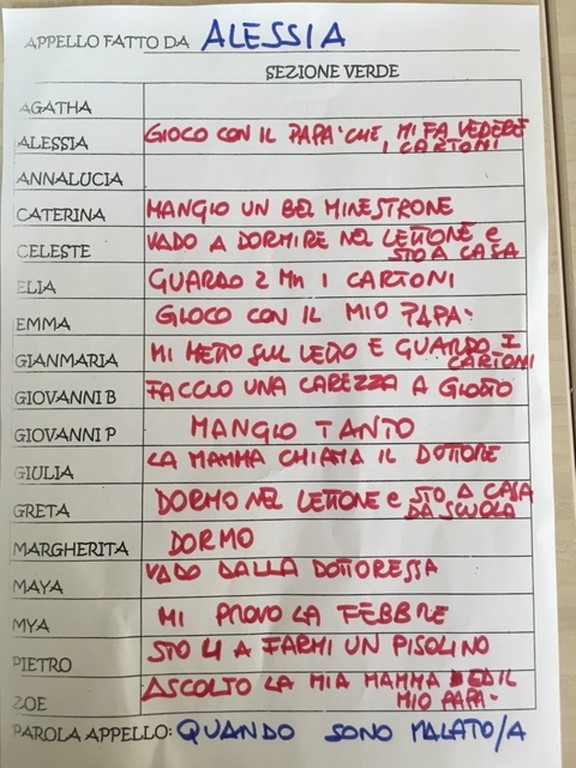 APPELLO FATTO DA ALESSIA
SEZIONE VERDE
AGATHA
ALESSIA GIOCO CON IL PAPA' CHE MI FA VEDERE
I CARTONI
ANNALUCIA
CATERINA MANGIO UN BEL MINESTRONE
CELESTE VADO A DORMIRE NEL LETTONE e
STO A CASA
ELIA GUARDO 2 MN I CARTONI
EMMA GIOCO CON IL MIO PAPA'
GIANMARIA MI METTO SUL LETTO E GUARDO I
CARTONI
GIOVANNI B FACCIO UNA CAREZZA A GIOTTO
GIOVANNI P MANGIO TANTO
GIULIA LA MAMMA CHIAMA IL DOTTORE
GRETA DORMO NEL LETTONE e STO A CASA
DA SCUOLA
MARGHERITA DORMO
MAYA VADO DALLA DOTTORESSA
MYA MI PROVO LA FEBBRE
PIETRO STO LI A FARMI UN PISOLINO
ZOE ASCOLTO LA MIA MAMMA ED IL
MIO PAPA'
PAROLA APPELLO: QUANDO SONO MALATO/A